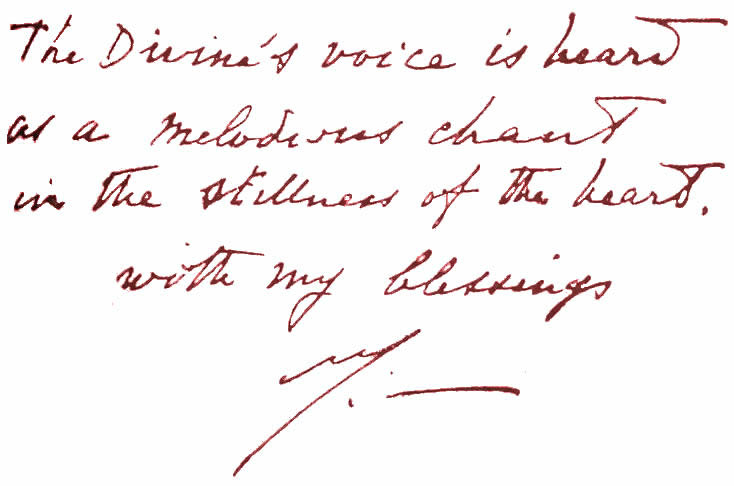 The Divine's voice is heard
as a melodious chant
in the stillness of the heart.
with my blessings